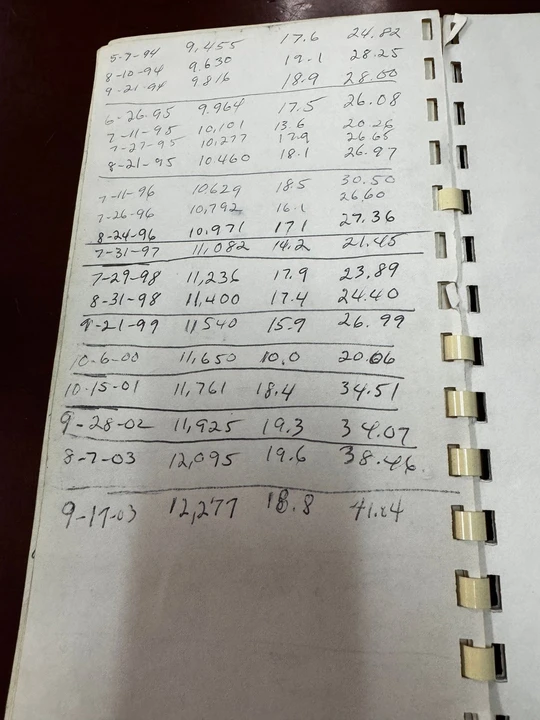 5-7-94 9,455 17.6 24.82
8-10-94 9,630 19.1 28.25
9-21-94 9816 18.9 28.00
6-26-95 9,964 17.5 26.08
7-11-95 10,101 13.6 20.26
7-27-95 10,277 17.9 26.65
8-21-95 10,460 18.1 26.97
7-11-96 10,629 18.5 30.50
7-26-96 10,792 16.1 26.60
8-24-96 10,971 17.1 27.36
7-31-97 11,082 14.2 21.45
7-29-98 11,236 17.9 23.89
8-31-98 11,400 17.4 24.40
9-21-99 11540 15.9 26.99
10-6-00 11,650 10.0 20.06
10-15-01 11,761 18.4 34.51
9-28-02 11,925 19.3 34.07
8-7-03 12,095 19.6 38.46
9-17-03 12,277 18.8